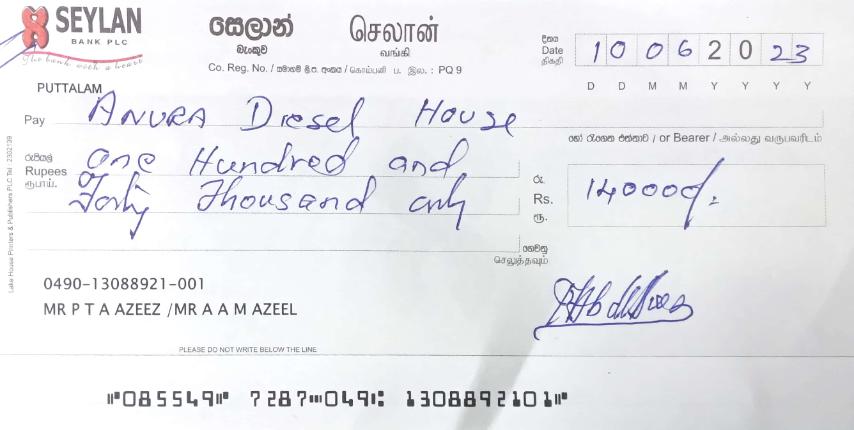 SEYLAN
BANK PLC
The bank with a heart
සෙලාන්
බැංකුව
செலான்
வங்கி
Co. Reg. No. / සමාගම් ලි.ප. අංකය / கொம்பனி ப. இல. : PQ 9
දිනය
Date
திகதி
1 0 0 6 2 0 2 3
D D M M Y Y Y Y
PUTTALAM
Pay ANURA Diesel House
හෝ රැගෙන එන්නාට / or Bearer / அல்லது வருபவரிடம்
රුපියල්
Rupees
ரூபாய்.
One Hundred and
Forty Thousand only
රු.
Rs.
ரூ.
140000/-
ගෙවනු
செலுத்தவும்
0490-13088921-001
MR P T A AZEEZ /MR A A M AZEEL
PLEASE DO NOT WRITE BELOW THE LINE
⑈085549⑈ 7287⑉049⑆ 1308892101⑈
Lake House Printers & Publishers PLC Tel : 2302139